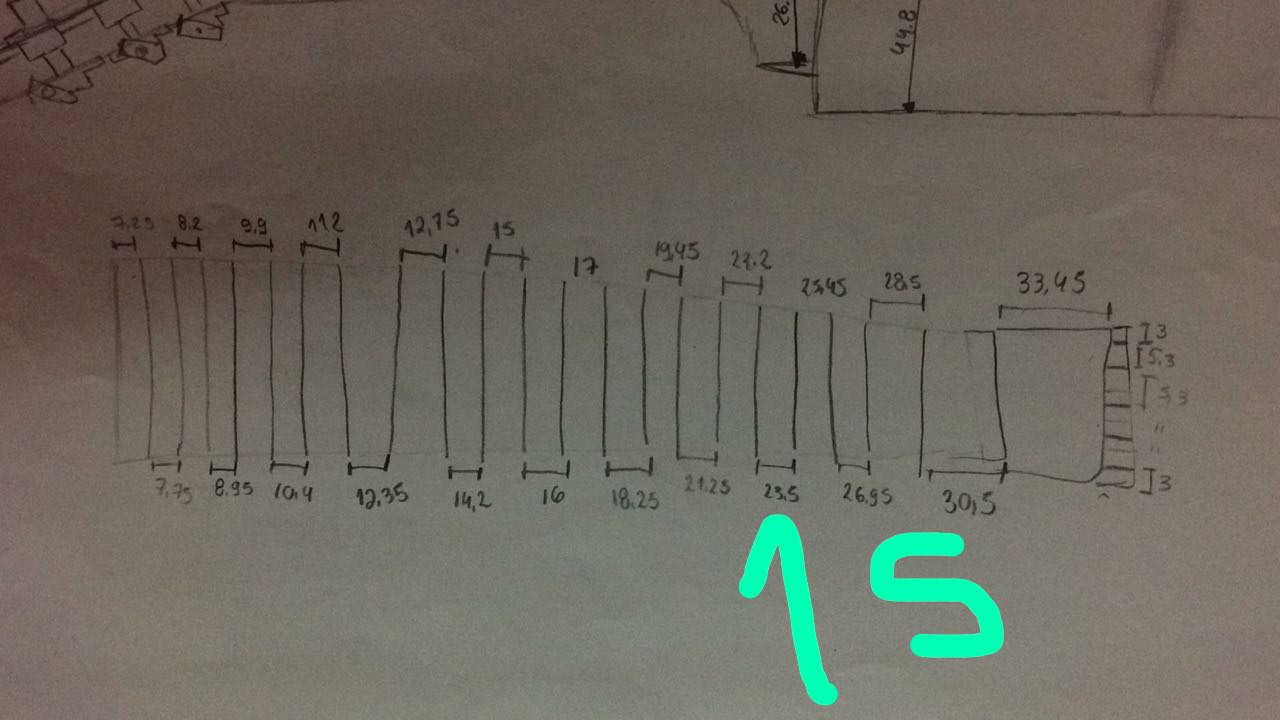 26.
44.8
7,25 8.2 9,9 11,2 12,75 15 17 19,45 22.2 25,45 28,5 33,45
3
5.3
5,3
"
"
3
7,75 8.95 10,4 12,35 14,2 16 18.25 21.25 23.5 26,95 30,5
15